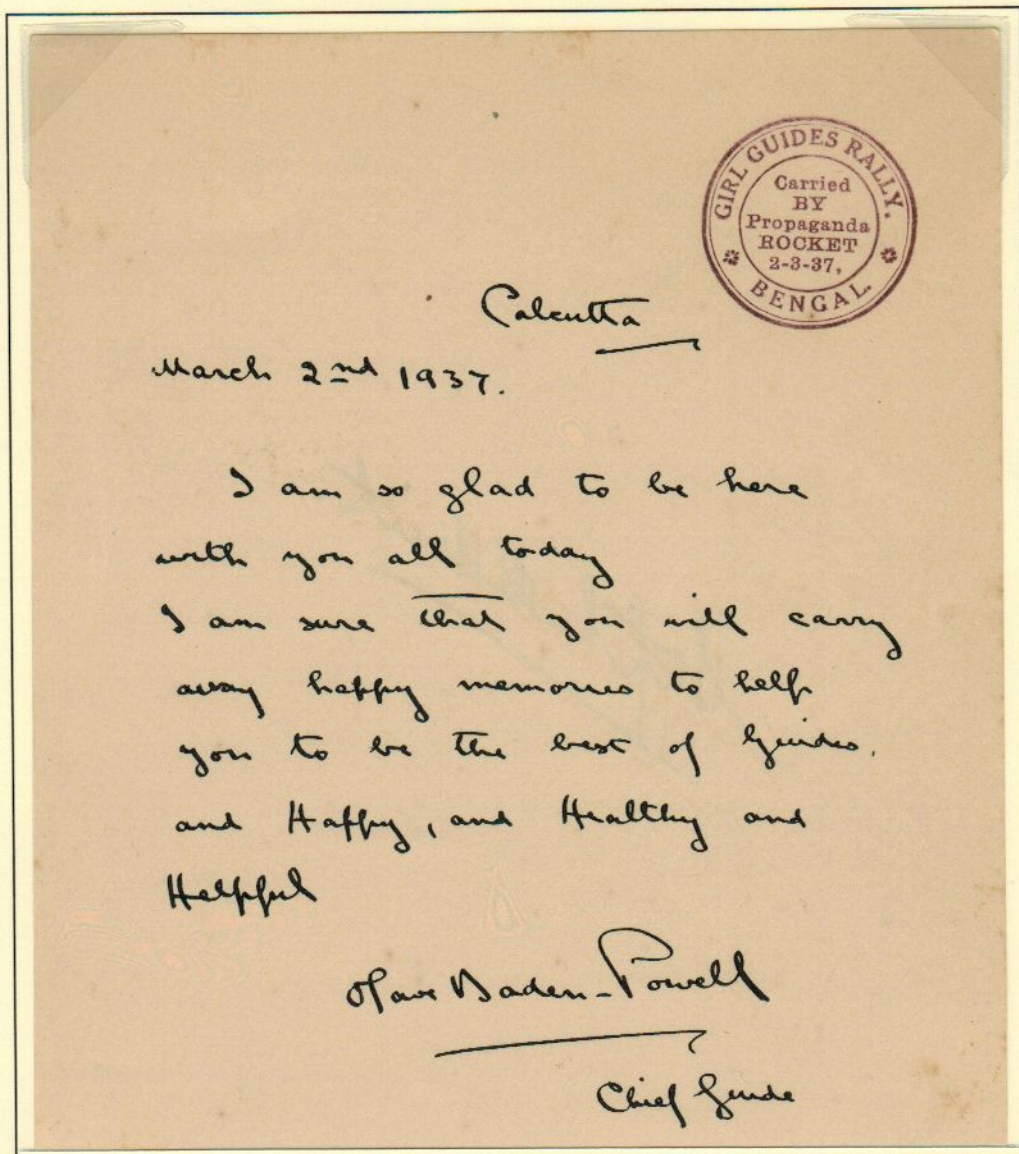 GIRL GUIDES RALLY.
Carried
BY
Propaganda
ROCKET
2-3-37,
BENGAL.
Calcutta
March 2nd 1937.
I am so glad to be here
with you all today
I am sure that you will carry
away happy memories to help
you to be the best of Guides.
and Happy, and Healthy and
Helpful
Olave Baden-Powell
Chief Guide